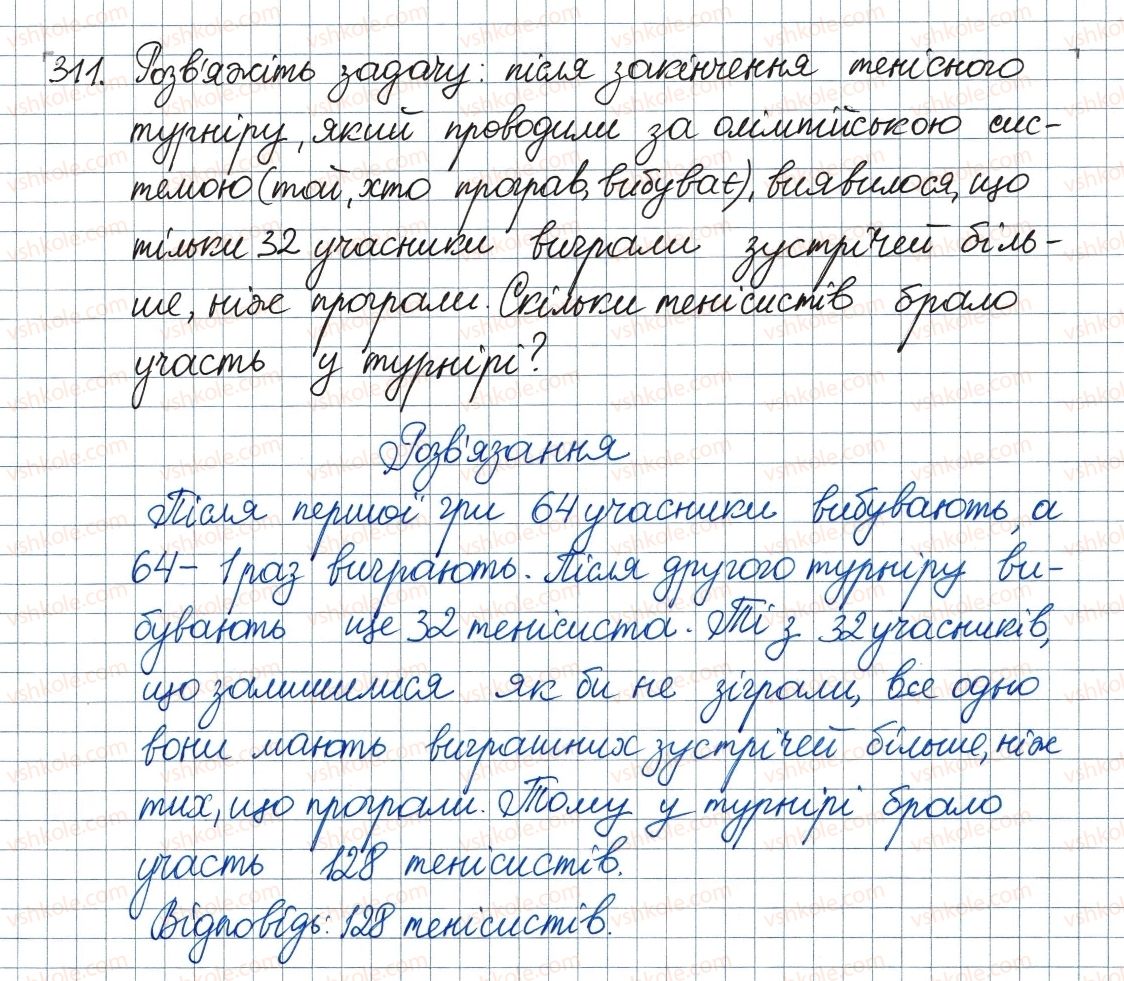 311. Розв'яжіть задачу: після закінчення тенісного
турніру, який проводили за олімпійською сис-
темою (той, хто програв, вибуває), виявилося, що
тільки 32 учасники виграли зустрічей біль-
ше, ніж програли. Скільки тенісистів брало
участь у турнірі?
Розв'язання
Після першої гри 64 учасники вибувають, а
64 - 1 раз виграють. Після другого турніру ви-
бувають ще 32 тенісиста. Ті з 32 учасників,
що залишилися як би не зіграли, все одно
вони мають виграшних зустрічей більше, ніж
тих, що програли. Тому у турнірі брало
участь 128 тенісистів.
Відповідь: 128 тенісистів.